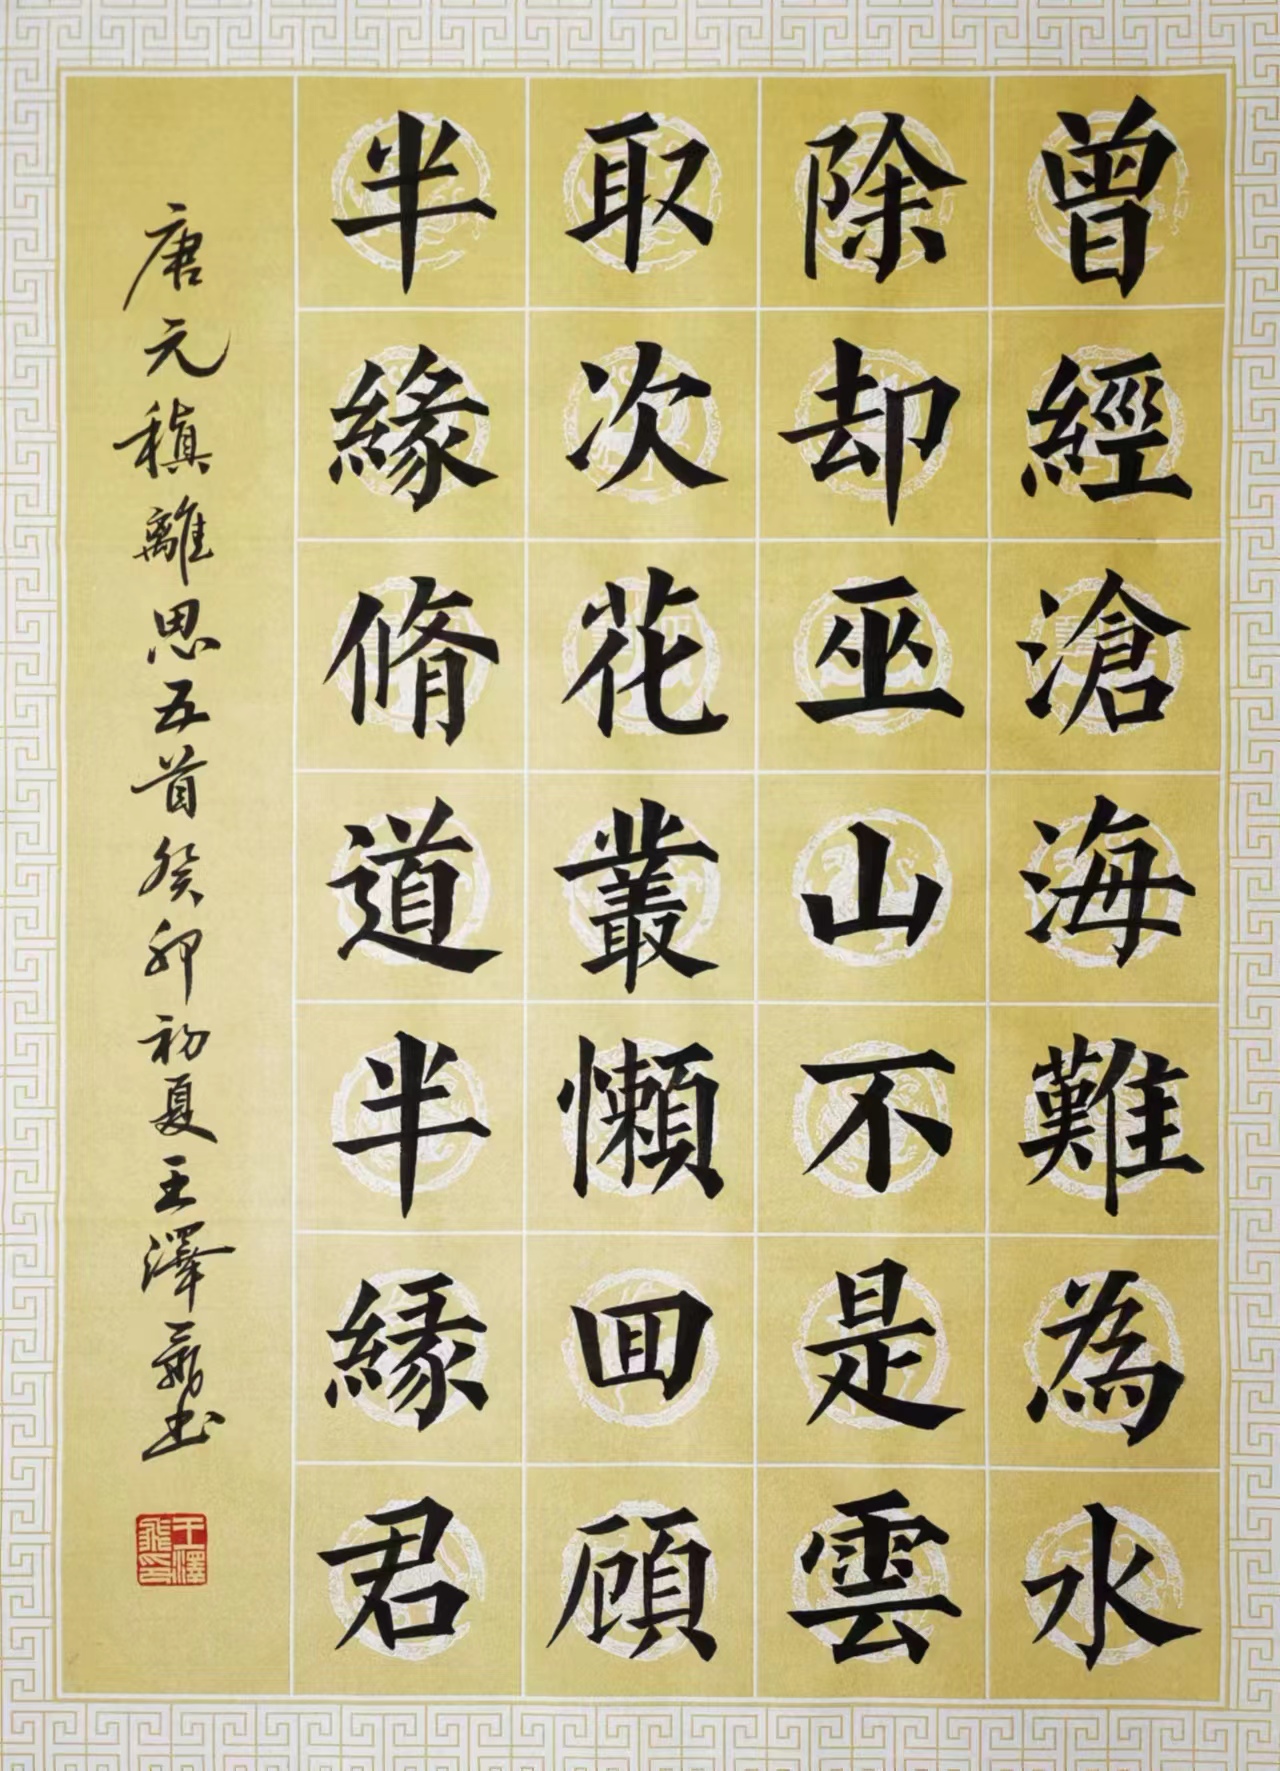 曾經滄海難為水
除却巫山不是雲
取次花叢懶囬頋
半緣脩道半緣君
唐元稹離思五首癸卯初夏王澤飛书
王澤飛印